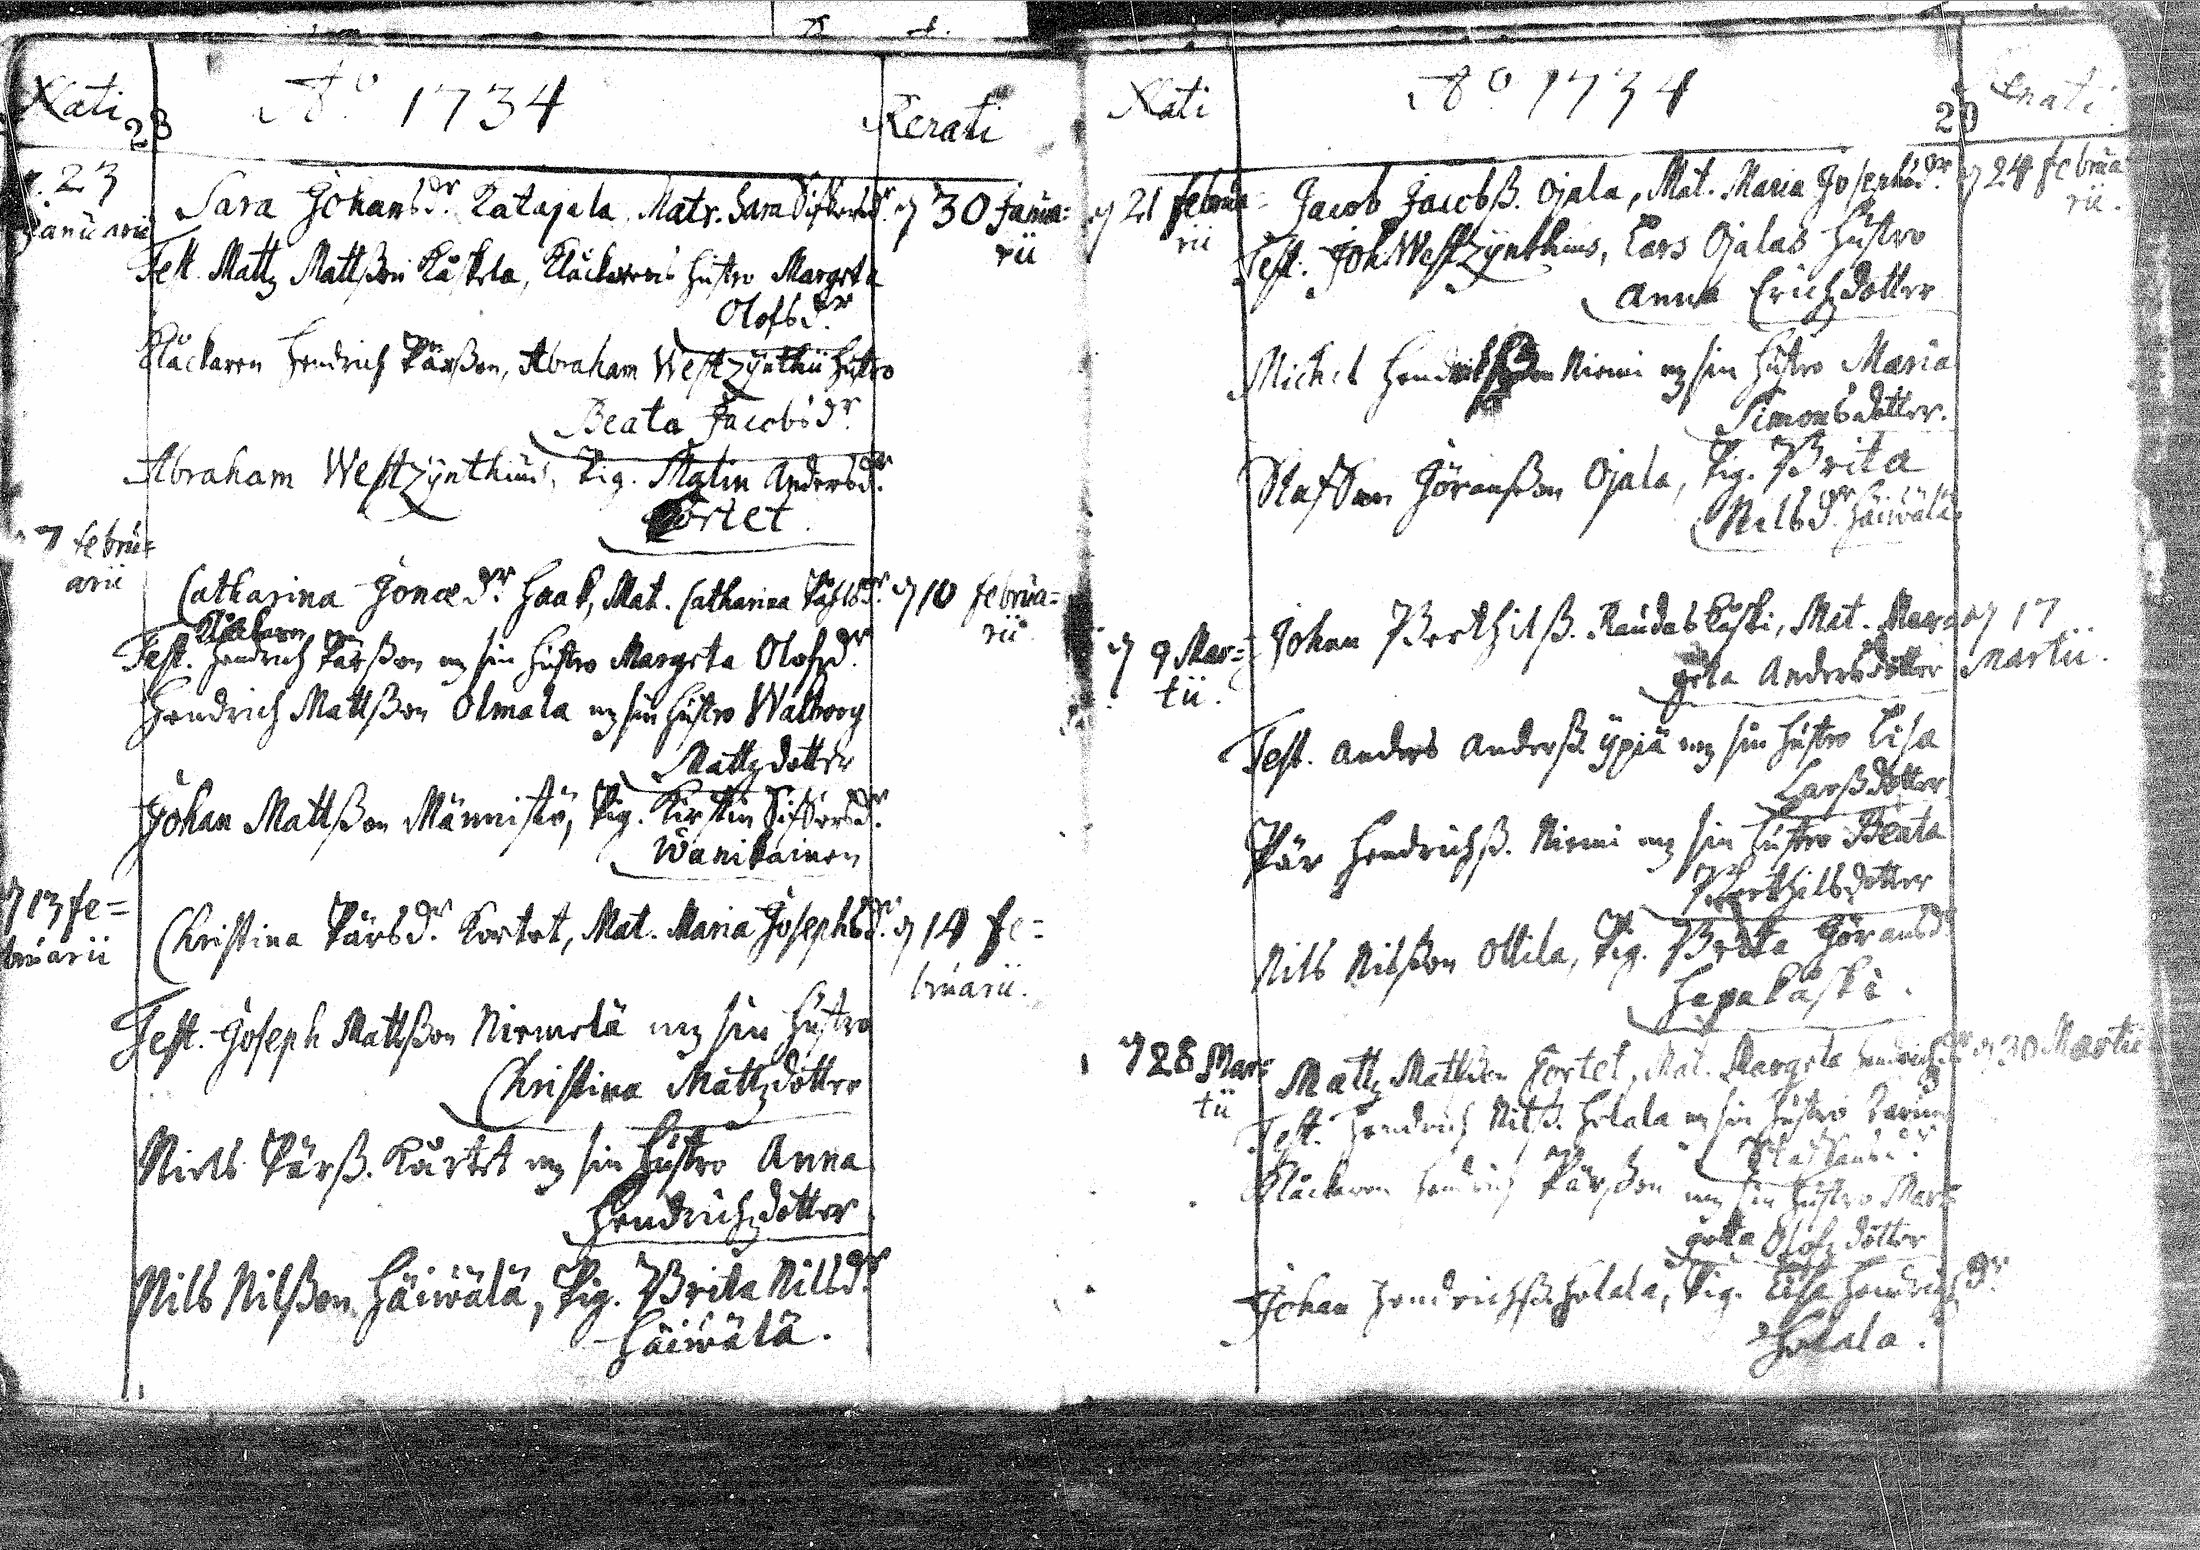 Nati
28
Aº. 1734
Renati
d. 23
Januarii
Sara Johansdr. Katajala, Matr. Sara Sifversdr.
d 30 Janua=
rii
Test. Mattz Mattßon Kåskela, Klåckarens hustro Margeta
Olofsdr.
Klåckaren Hendrich Pärßon, Abraham Westzynthii hustro
Beata Jacobsdr.
Abraham Westzynthius, Pig. Malin Andersdr.
Kortet.
d 7 febru=
arii
Catharina Jonædr. Haak, Mat. Catharina Påhlsdr.
d 10 februa=
rii.
Klåckaren
Test. Hendrich Pärßon mz sin hustro Margeta Olofzdr.
Hendrich Mattßon Olmala mz sin hustro Walborg
Mattzdotter
Johan Mattßon Männistö, Pig. Kirstin Sifversdr.
Wänikainen
d 13 fe=
bruarii
Christina Pärsdr. Kortet, Mat. Maria Josephsdr.
d 14 fe=
bruarii.
Test. Joseph Mattßon Niemelä mz sin hustro
Christina Mattzdotter
Niels Pärß. Kurtet mz sin hustro Anna
Hendrichzdotter
Nils Nilßon Häiwälä, Pig. Brita Nilsdr.
Häiwälä.
Nati
Aº 1734
29
Renati
d 21 februa=
rii
Jacob Jacobß. Ojala, Mat. Maria Josephsdr.
d 24 februa
rii.
Test. Joh. Westzynthius, Lars Ojalas hustro
Anna Erichzdotter
Michel Niemi mz sin hustro Maria
Simonsdotter.
Staffan Göranßon Ojala, Pig. Brita
Nilsdr. Häiwälä
d 9 Mar=
tii.
Johan Berthilß. Raudaskåski, Mat. Mar=
geta Andersdotter
d 17
Martii.
Test. Anders Anderß. Ypiä mz sin hustro Lisa
Larßdotter
Pär Hendrichß. Niemi mz sin hustro Beata
Berthilsdotter
Nils Nilßon Ollila, Pig. Brita Göransdr
Hapakåski.
d 28 Mar=
tii
Mattz Mattßon Kortet, Mat. Margeta Hendrichzdr
d 30 Martii
Test. Hendrich Nilß. Holala mz sin hustro Karin
Staffansdr.
Klåckaren Hendrich Pärßon mz sin hustro Mar=
geta Olofzdotter
Johan Hendrichß. Holala, Pig. Lisa Hendrichzdr.
Holala.